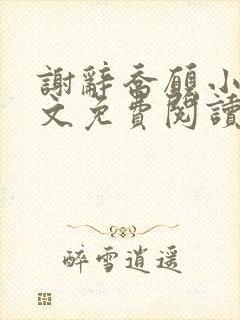 謝辭喬願小
文免費閱讀
醉雪逍遥